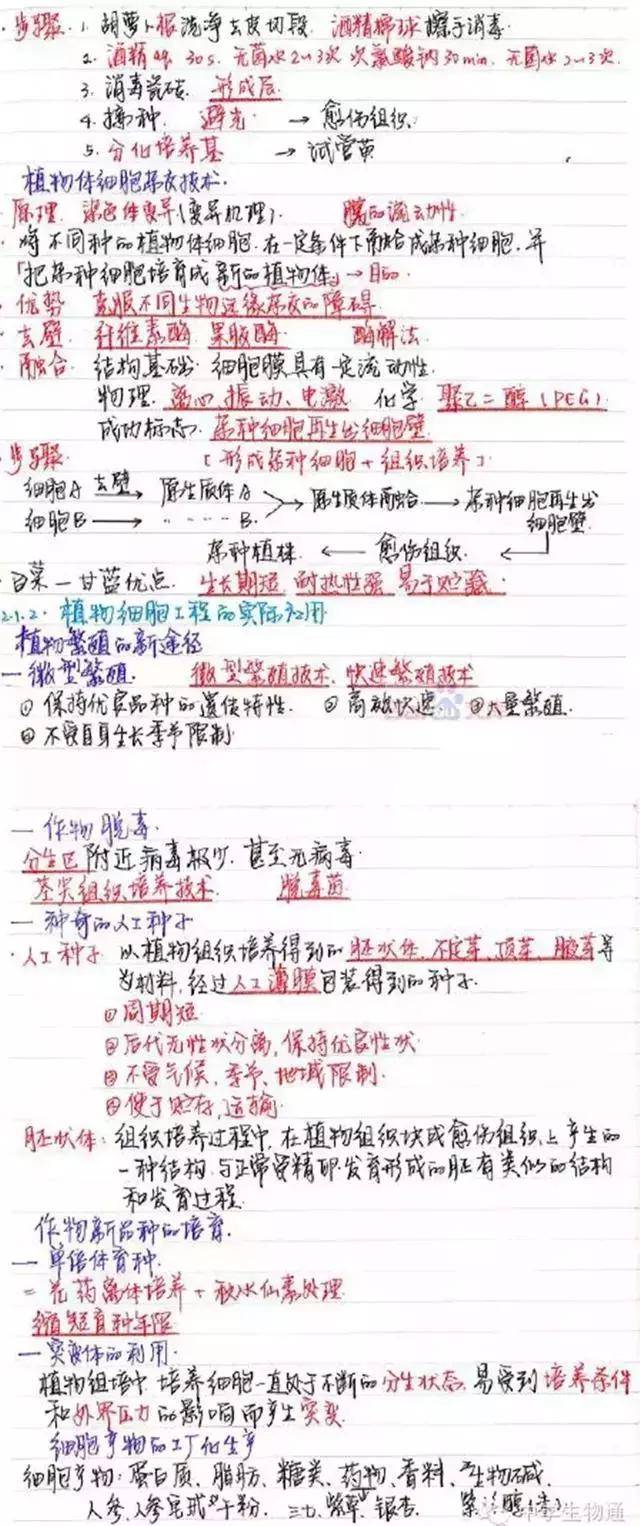 ·步骤. 1. 胡萝卜根洗净去皮切段. 酒精棉球擦手消毒.
2. 酒精 30s. 无菌水2~3次 次氯酸钠30min. 无菌水2~3次.
3. 消毒瓷砖. 形成层.
4. 接种. 避光 → 愈伤组织.
5. 分化培养基 → 试管苗
植物体细胞杂交技术.
·原理. 染色体变异(变异机理). 膜的流动性.
·将不同种的植物体细胞.在一定条件下融合成杂种细胞.并
「把杂种细胞培育成新的植物体」→目的.
·优势 克服不同生物远缘杂交的障碍.
·去壁. 纤维素酶 果胶酶 酶解法
·融合. 结构基础: 细胞膜具有一定流动性.
物理. 离心、振动、电激 化学. 聚乙二醇(PEG)
成功标志: 杂种细胞再生出细胞壁
·步骤. [形成杂种细胞+组织培养]
细胞A 去壁→ 原生质体A
细胞B → ····· B. > 原生质体融合 → 杂种细胞再生出细胞壁
杂种植株 ← 愈伤组织. ←
·白菜—甘蓝优点. 生长期短 耐热性强 易于贮藏.
2.1.2. 植物细胞工程的实际应用
植物繁殖的新途径
—微型繁殖. 微型繁殖技术. 快速繁殖技术
① 保持优良品种的遗传特性. ② 高效快速. ③大量繁殖.
④ 不受自身生长季节限制
—作物脱毒.
分生区附近病毒极少.甚至无病毒.
茎尖组织培养技术. 脱毒苗
—神奇的人工种子
·人工种子. 以植物组织培养得到的胚状体、不定芽、顶芽、腋芽等
为材料.经过人工薄膜包装得到的种子.
①周期短
②后代无性状分离,保持优良性状
③不受气候、季节、地域限制.
④便于贮存,运输.
胚状体: 组织培养过程中,在植物组织块或愈伤组织上产生的
一种结构.与正常受精卵发育形成的胚有类似的结构
和发育过程.
作物新品种的培育.
—单倍体育种.
=花药离体培养+秋水仙素处理.
缩短育种年限
—突变体的利用.
植物组培中.培养细胞一直处于不断的分生状态,易受到培养条件
和外界压力的影响而产生突变.
细胞产物的工厂化生产
细胞产物: 蛋白质、脂肪、糖类、药物、香料、生物碱.
人参.人参皂甙 干粉. 三七、紫草、银杏.
中学生物通